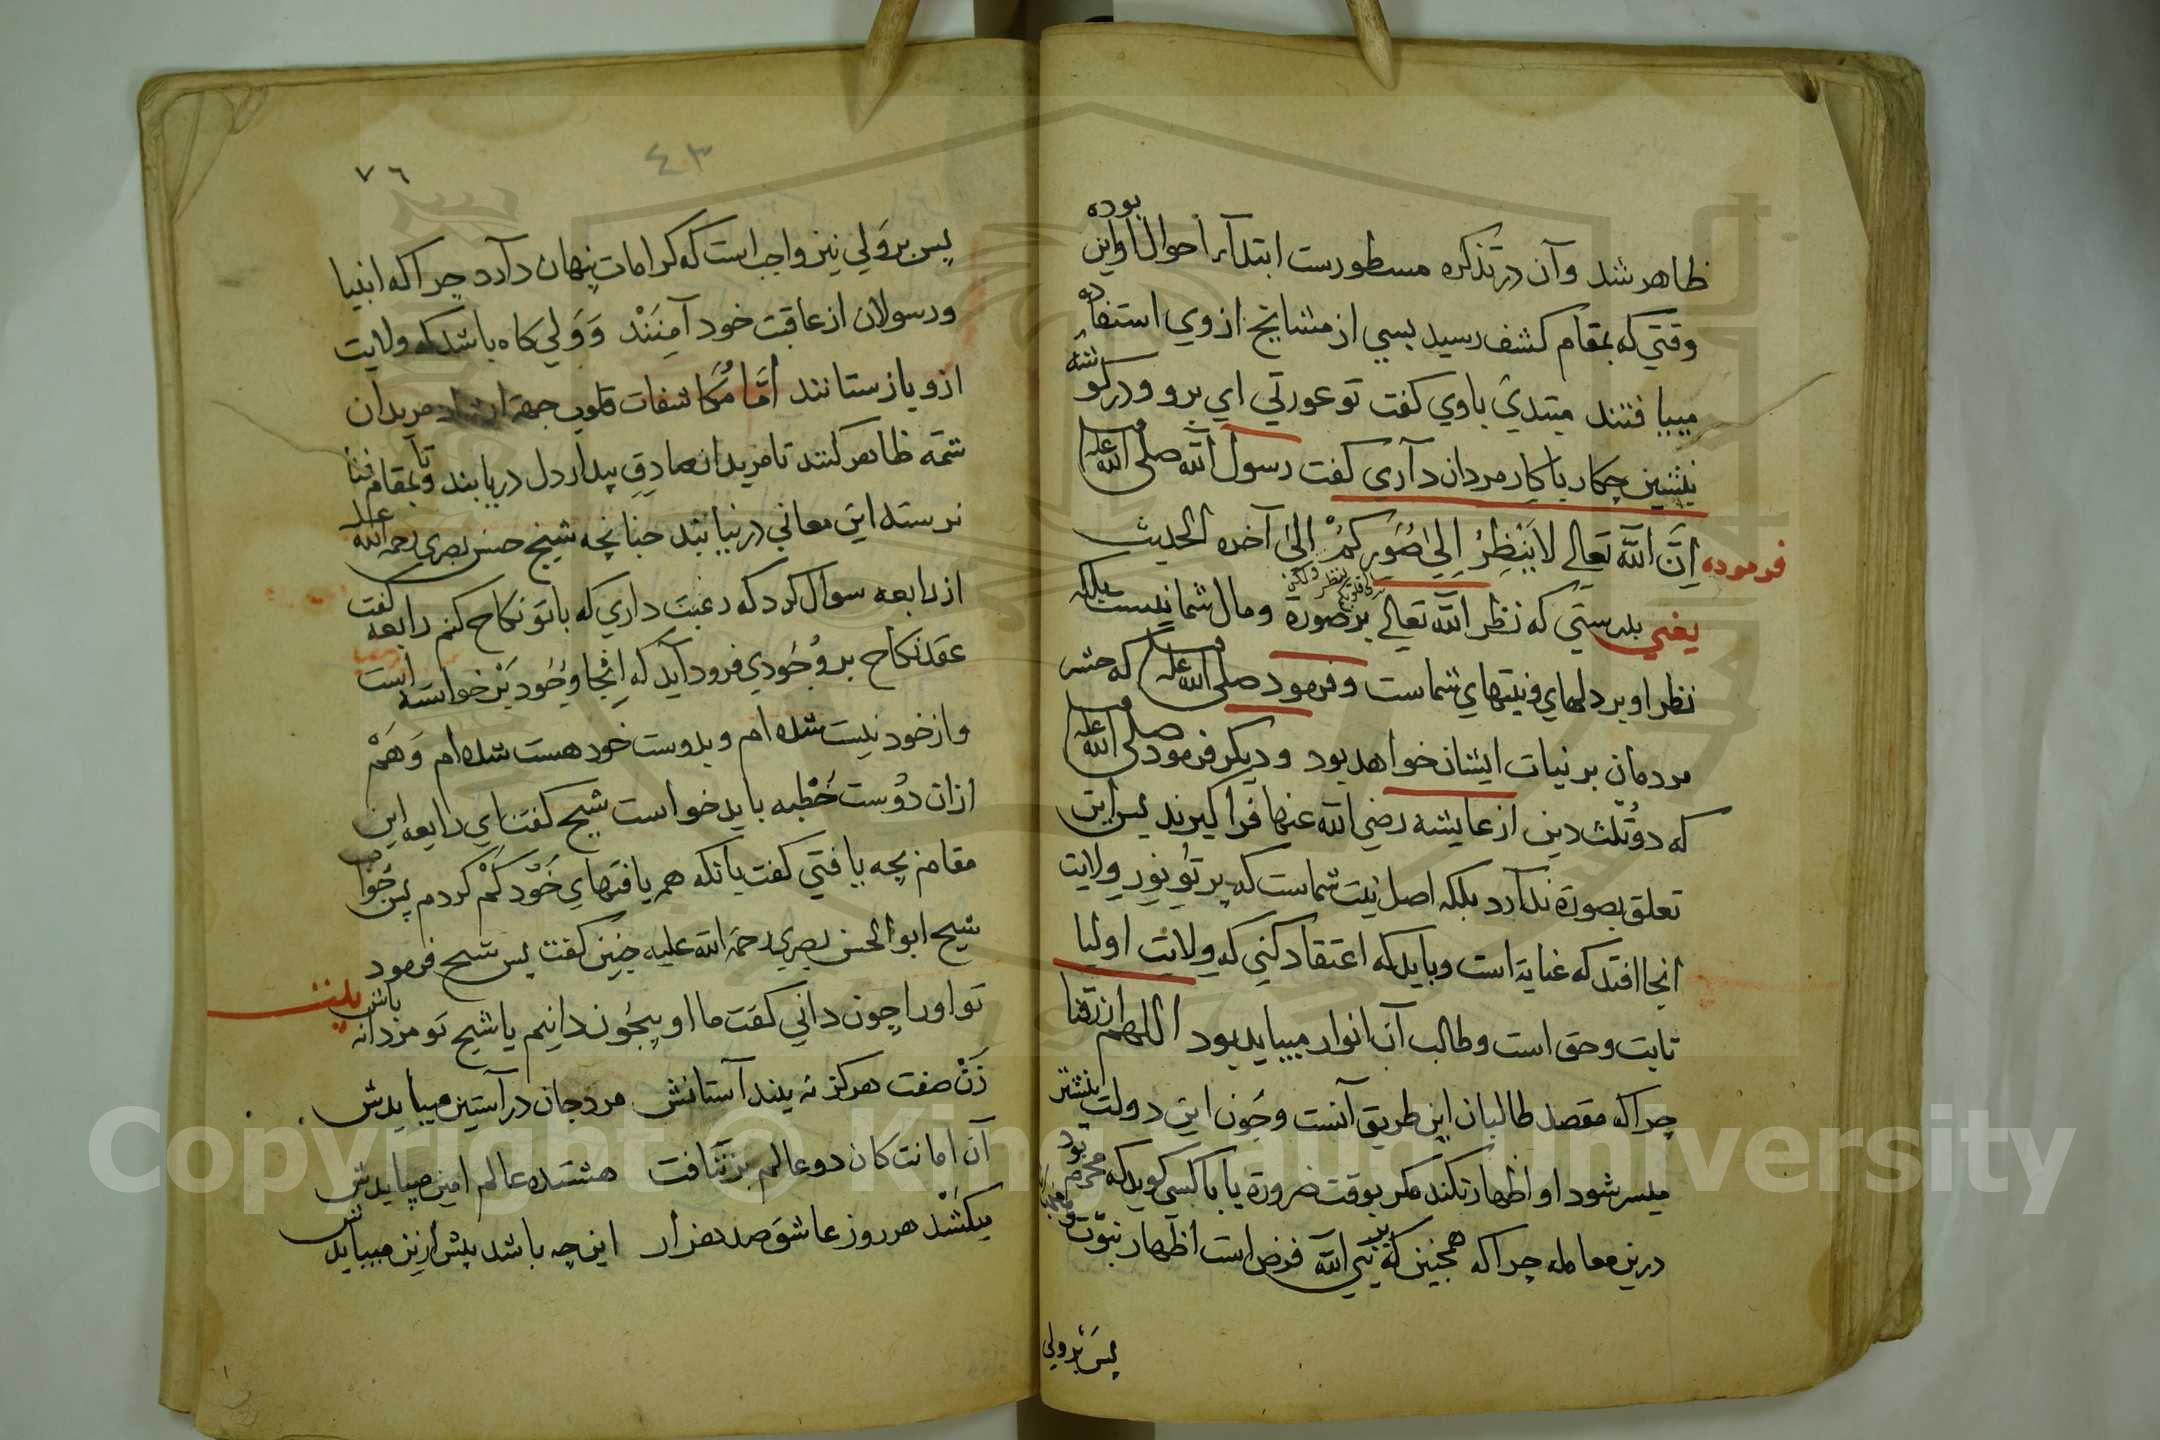 ظاهر شد وآن در تذكره مسطورست ابتداء احوال او اين بوده
وقتي كه بمقام كشف رسيد بسي از مشايخ ازوي استفاده
ميبافتند مبتدي باوي كفت تو عورتي اي برو ودر كوشه
بنشين چكار باكار مردان داري كفت رسول الله صلى الله عليه
فرموده اِنَّ الله تعالى لاَيَنْظِرُ اِلىٰ صُوَرِكُمْ الىٰ آخره الحديث
يعني بدرستي كه نظر الله تعالى بر صورة ومال شما نيست بلكه
نظر او بر دلهاي ونيتهاي شماست وفرمود صلى الله عليه كه حشر
مردمان بر نيات ايشان خواهد بود وديكر فرمود صلى الله عليه
كه دوثُلث دين از عايشه رضي الله عنها فرا كيريد پس اين
تعلق بصورة ندارد بلكه اصل نيت شماست كه پرتو نورِ ولايت
انجا افتد كه عناية است وبايد كه اعتقاد كني كه ولايت اوليا
ثابت وحق است وطالب آن انوار ميبايد بود اللهم ارزقنا
چراكه مقصد طالبان اين طريق آنست وچون اين دولت
ميسر شود او اظهار نكند مكر بوقت ضرورة يا باكسي كويد كه محرم بود
درين معامله چراكه همچنين كه بر نبي الله فرض است اظهار نبوّت
پس بر ولي
٧٦
٤٣
پس بر وَلي نيز واجب است كه كرامات پنهان دارد چراكه انبيا
ورسولان از عاقبت خود آمِنَنْد وَوَلي كاه باشد كه ولايت
ازو باز ستانند اَمَّا مُكاشفات قلوب جهة ارشاد مريدان
شمه ظاهر كنند تا مريدان صادق بيدار دل دريابند وتا بمقام فنا
نرسند اين معاني درنيابند چنانچه شيخ حسن بصري رحمة الله عليه
از رابعه سوال كرد كه رغبت داري كه باتو نكاح كنم رابعه كفت
عقد نكاح بر وُجُودي فرود آيد كه اِنجا وُجُود بَرْخواسته است
واز خود نيست شده ام وبدوست خود هست شده ام وَهَمْ
ازان دُوست خُطبه بايد خواست شيخ كفت اي رابعه اين
مقام بچه يافتي كفت بانكه همه يافتهاي خَوْد كُمْ كردم پس جواب
شيخ ابو الحسن بصري رحمة الله عليه چنين كفت پس شيخ فرمود
تو او را چون داني كفت ما او بيچون دانيم يا شيخ تو مردانه باش بيت
زَنْ صفت هركز نه بيند آستانش مرد جان در آستين ميبايدش
آن امانت كان دو عالم برنتافت هشتده عالم امين ميبايدش
ميكشَد هر روز عاشق صد هزار اين چه باشد بيش ازين ميبايدش
Copyright © King Saud University